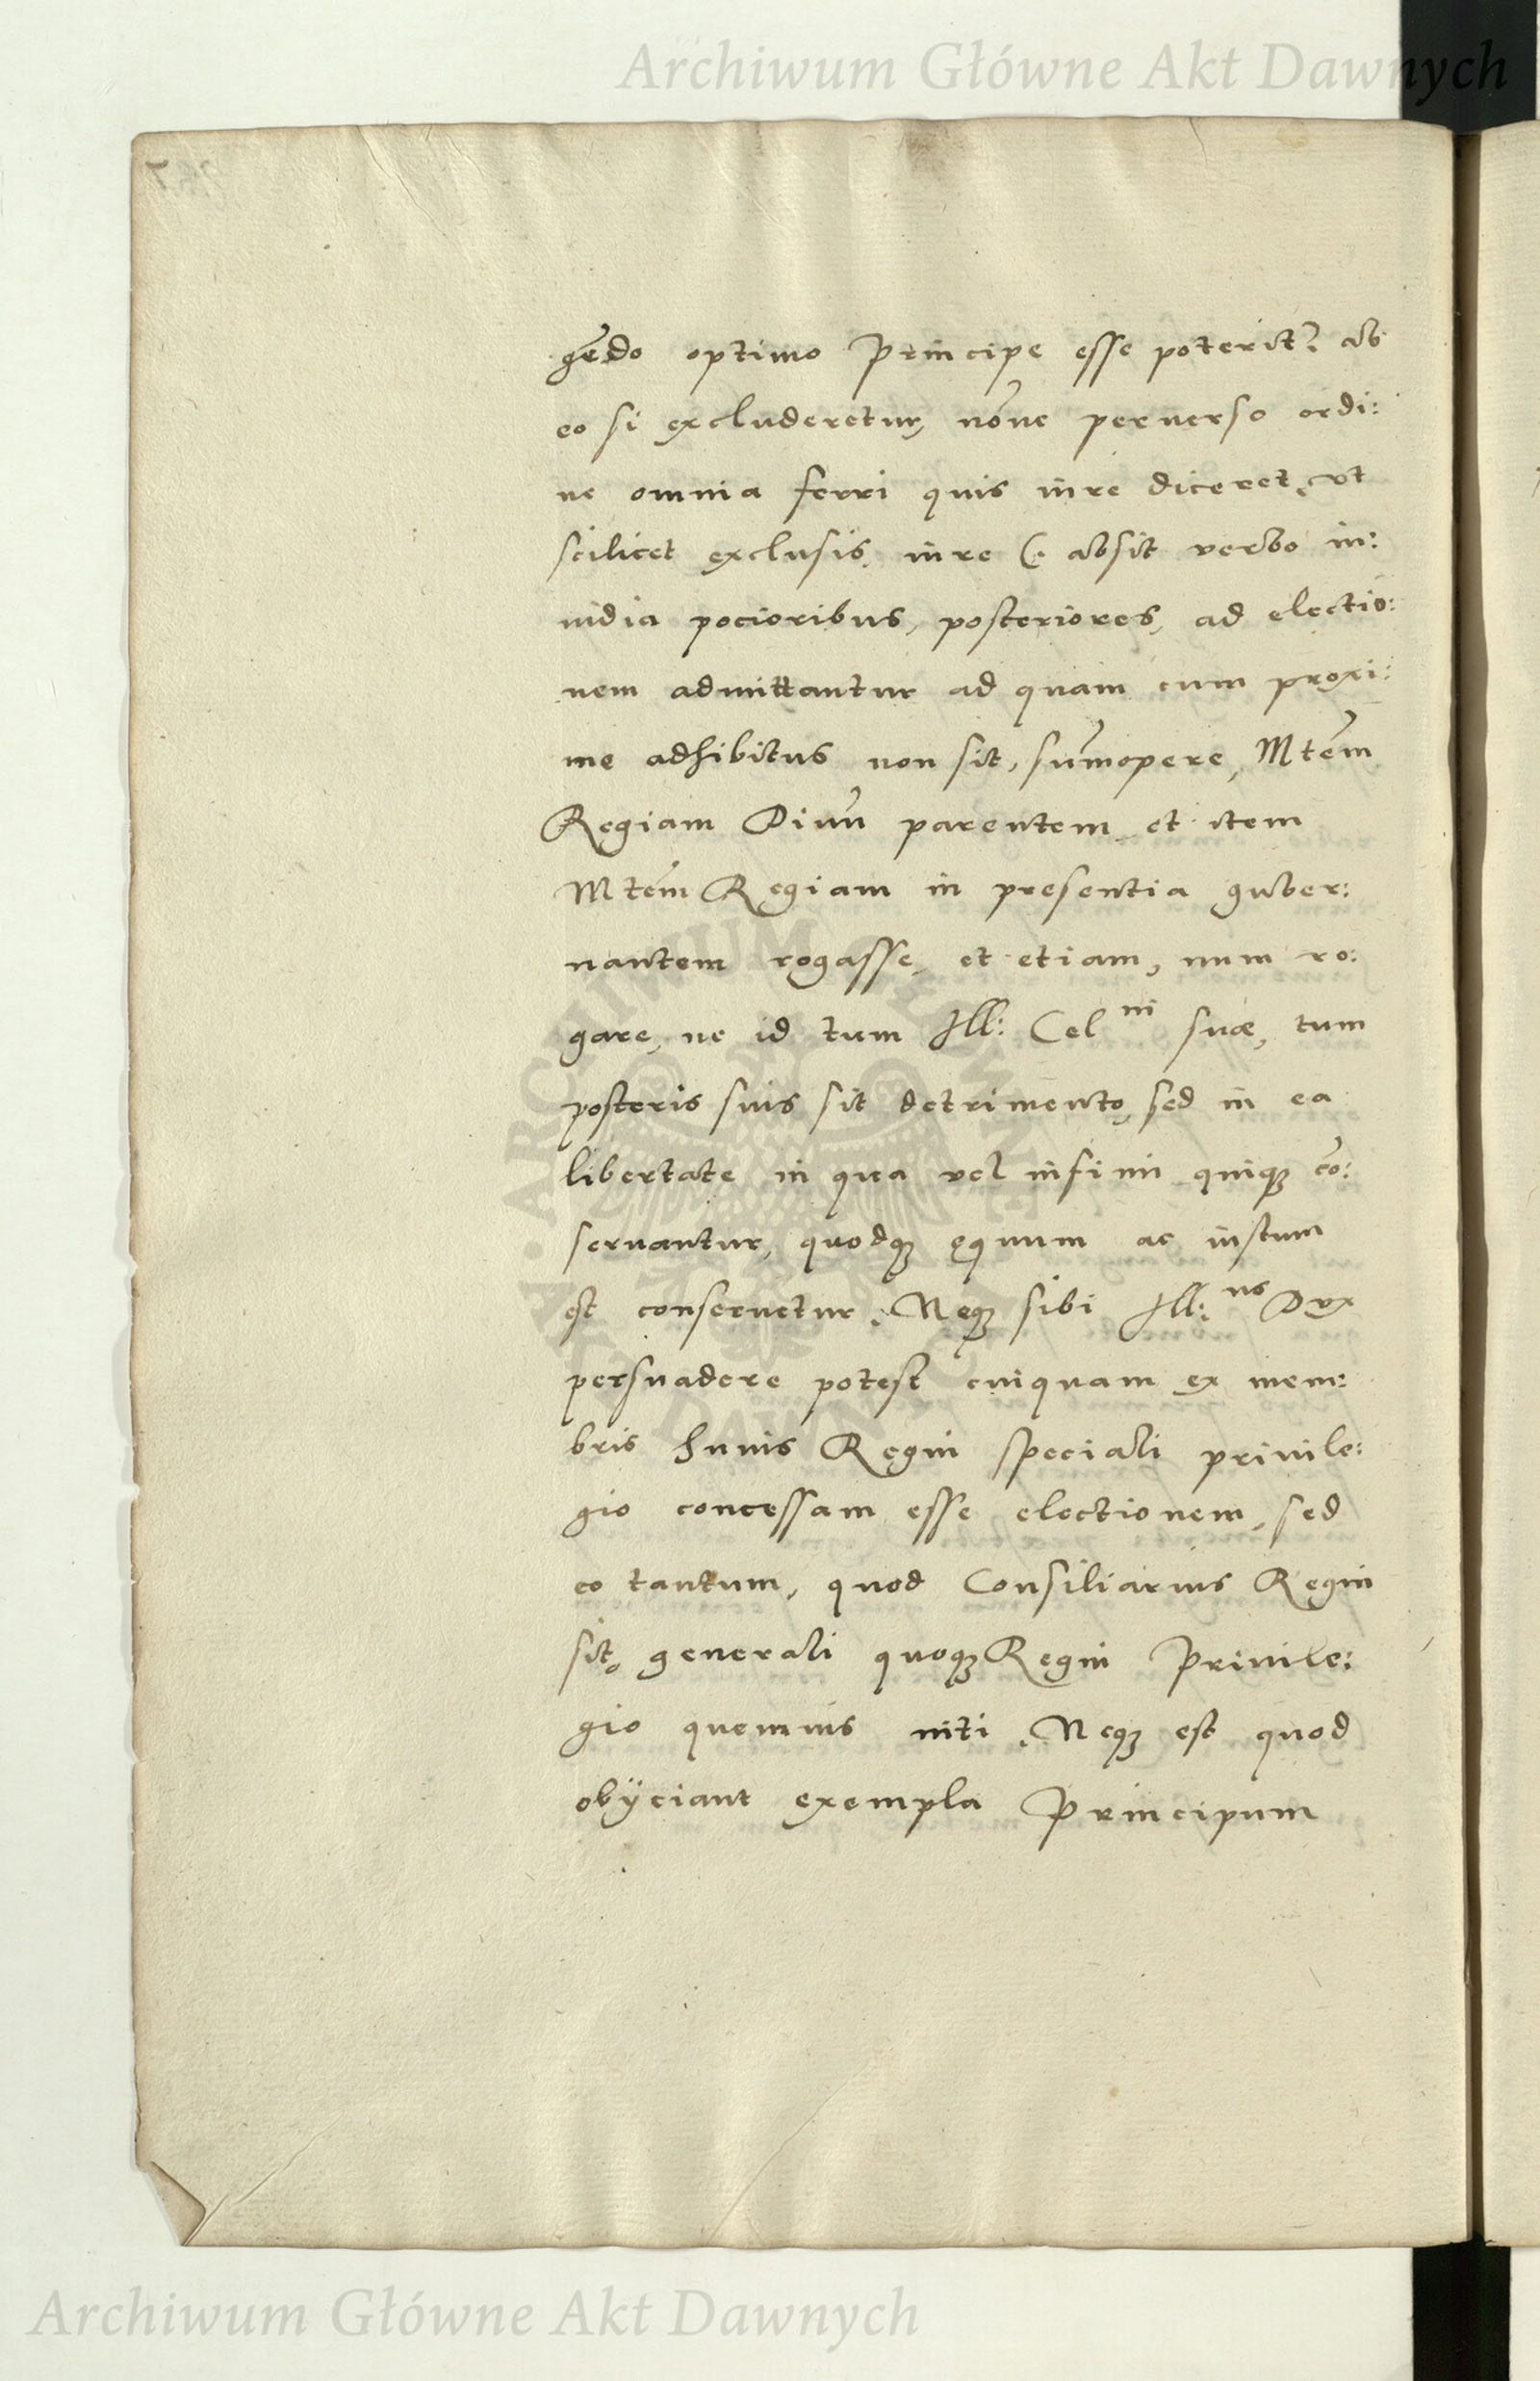 Archiwum Główne Akt Dawnych
gēdo optimo Principe esse poterit? ab
eo si excluderetur, nōne peruerso ordi:
ne omnia ferri quis iure diceret, vt
scilicet exclusis, iure (: absit verbo in:
uidia pocioribus, posteriores, ad electio:
nem admittantur ad quam cum proxi:
me adhibitus non sit, sum̄opere, Mtēm
Regiam Diuū parentem et item
Mtēm Regiam in presentia guber:
nantem rogasse, et etiam, num ro:
gare, ne id tum Ill: Cel ni suæ, tum
posteris suis sit detrimento, sed in ea
libertate in qua vel infimi quiqꝫ cō:
seruantur, quodqꝫ ęquum ac iustum
est conseruetur. Neqꝫ sibi Ill: us Dux
persuadere potest cuiquam ex mem:
bris huius Regni speciali priuile:
gio concessam esse electionem, sed
eo tantum, quod Consiliarius Regni
sit, generali quoqꝫ Regni Priuile:
gio quemuis niti. Neqꝫ est quod
obÿciant exempla Principum
Archiwum Główne Akt Dawnych